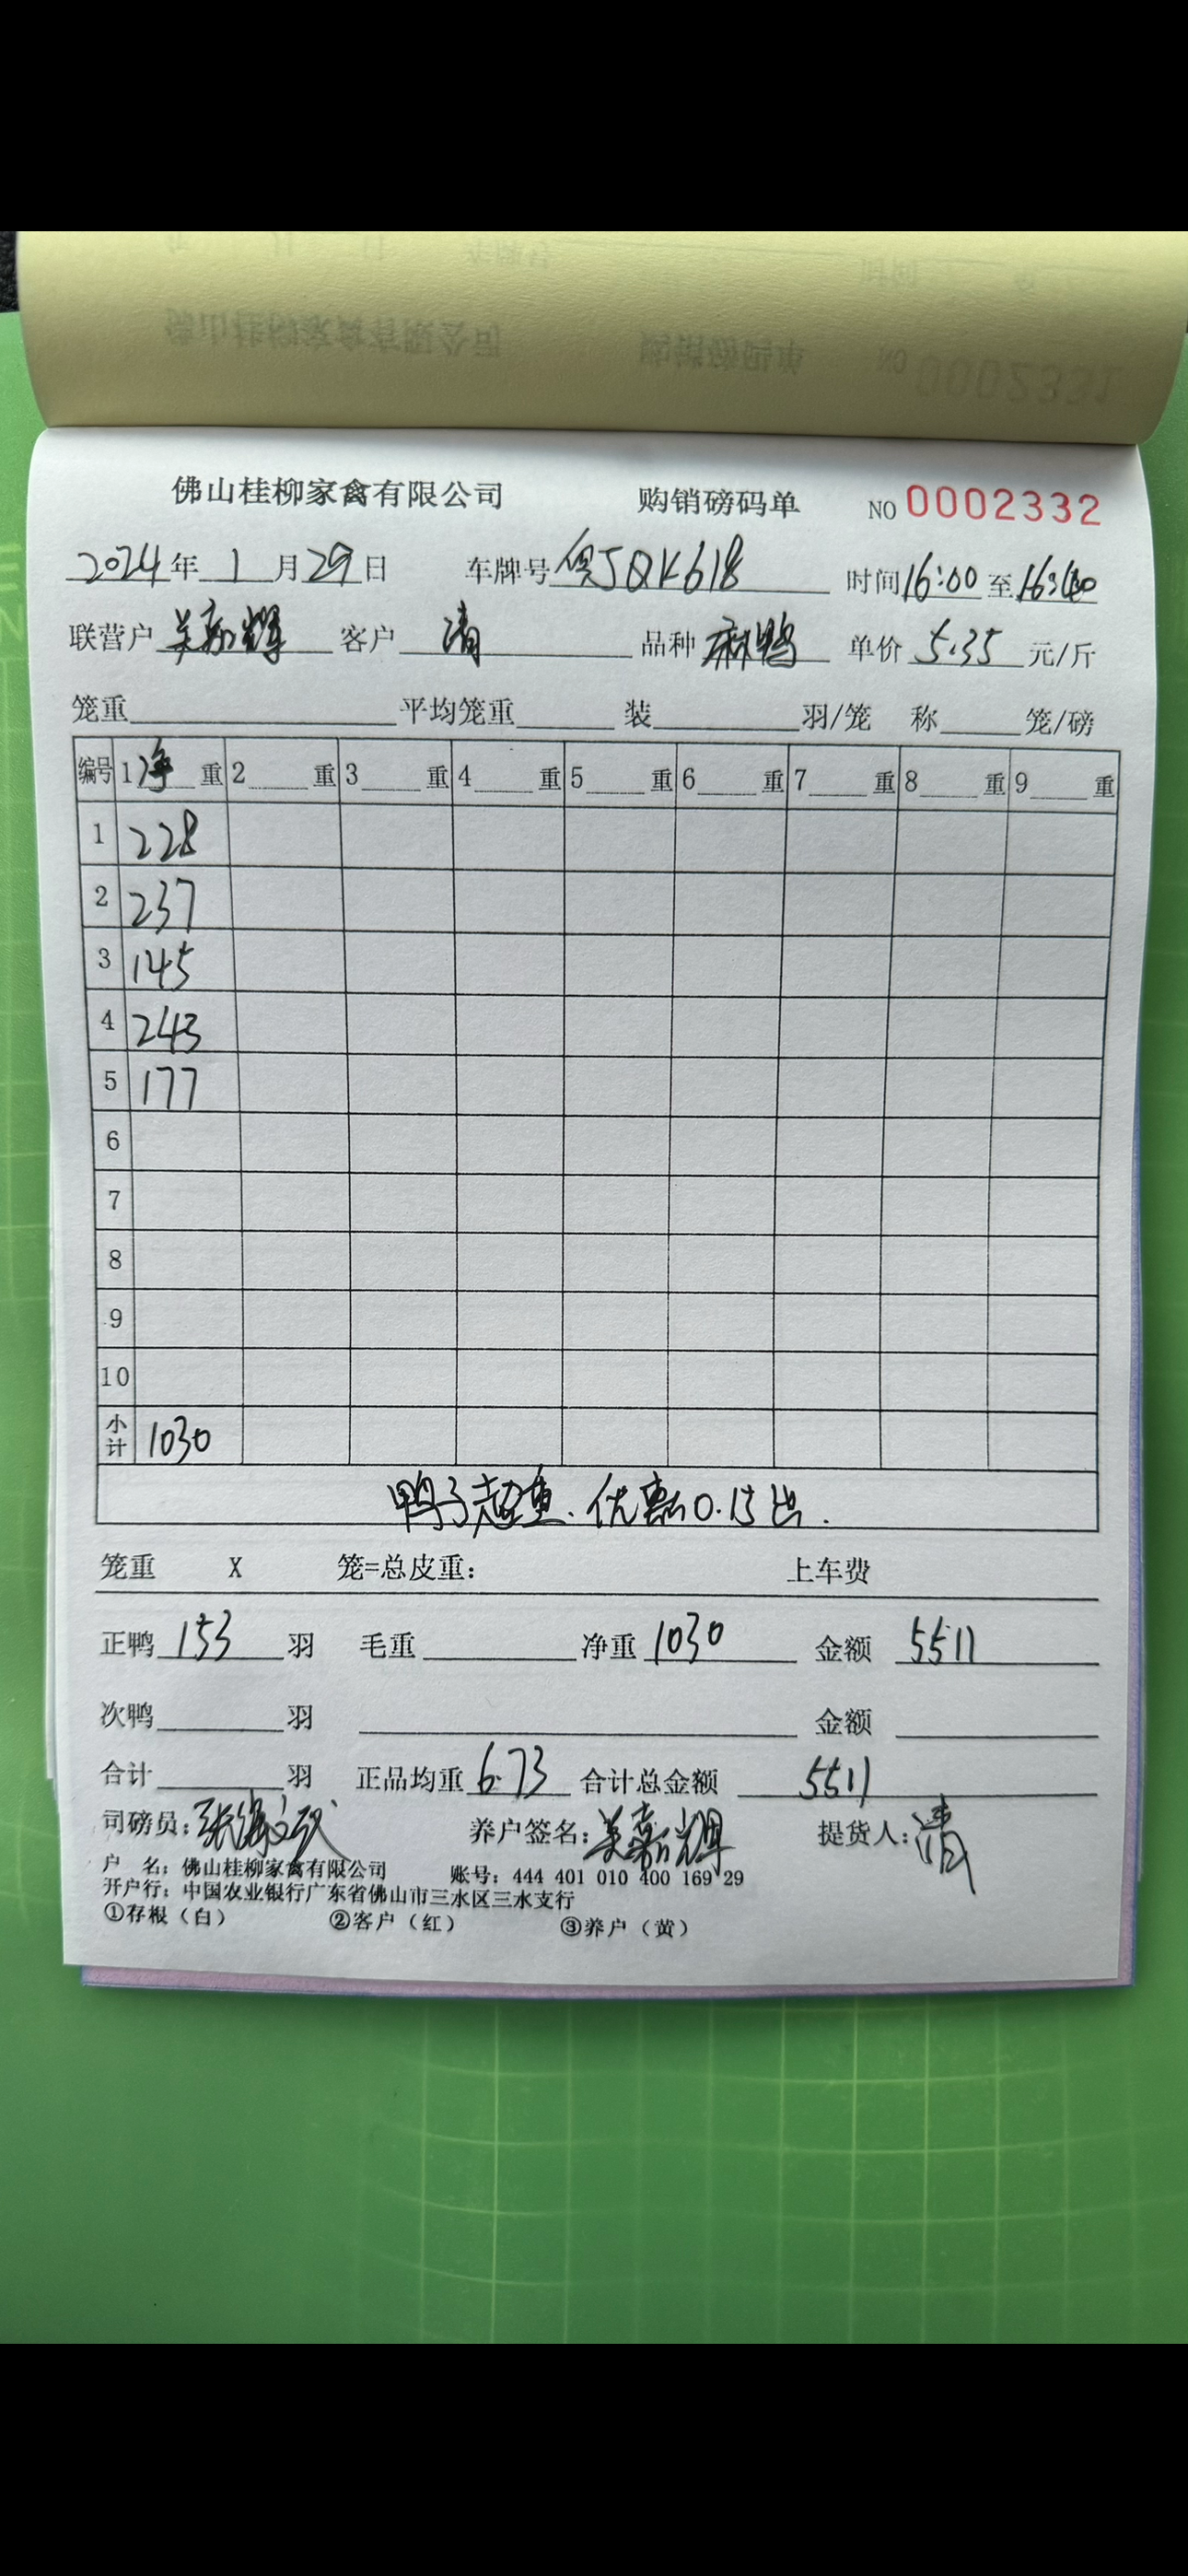 佛山桂柳家禽有限公司 购销磅码单 NO 0002332
2024年 1 月 29 日 车牌号 粤JQK618 时间 16:00 至 16:40
联营户 吴嘉辉 客户 清 品种 麻鸭 单价 5.35 元/斤
笼重 平均笼重 装 羽/笼 称 笼/磅
编号 1 净 重 2 重 3 重 4 重 5 重 6 重 7 重 8 重 9 重
1 228
2 237
3 145
4 243
5 177
6
7
8
9
10
小计 1030
鸭子超重.优惠0.15出.
笼重 X 笼=总皮重: 上车费
正鸭 153 羽 毛重 净重 1030 金额 5511
次鸭 羽 金额
合计 羽 正品均重 6.73 合计总金额 5511
司磅员: 养户签名: 吴嘉辉 提货人: 清
户 名: 佛山桂柳家禽有限公司 账号: 444 401 010 400 169 29
开户行: 中国农业银行广东省佛山市三水区三水支行
①存根（白） ②客户（红） ③养户（黄）